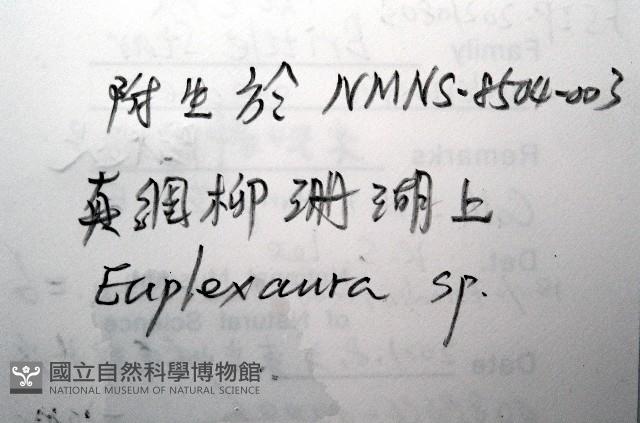 附生於 NMNS-8504-003
真網柳珊瑚上
Euplexaura sp.
國立自然科學博物館
NATIONAL MUSEUM OF NATURAL SCIENCE